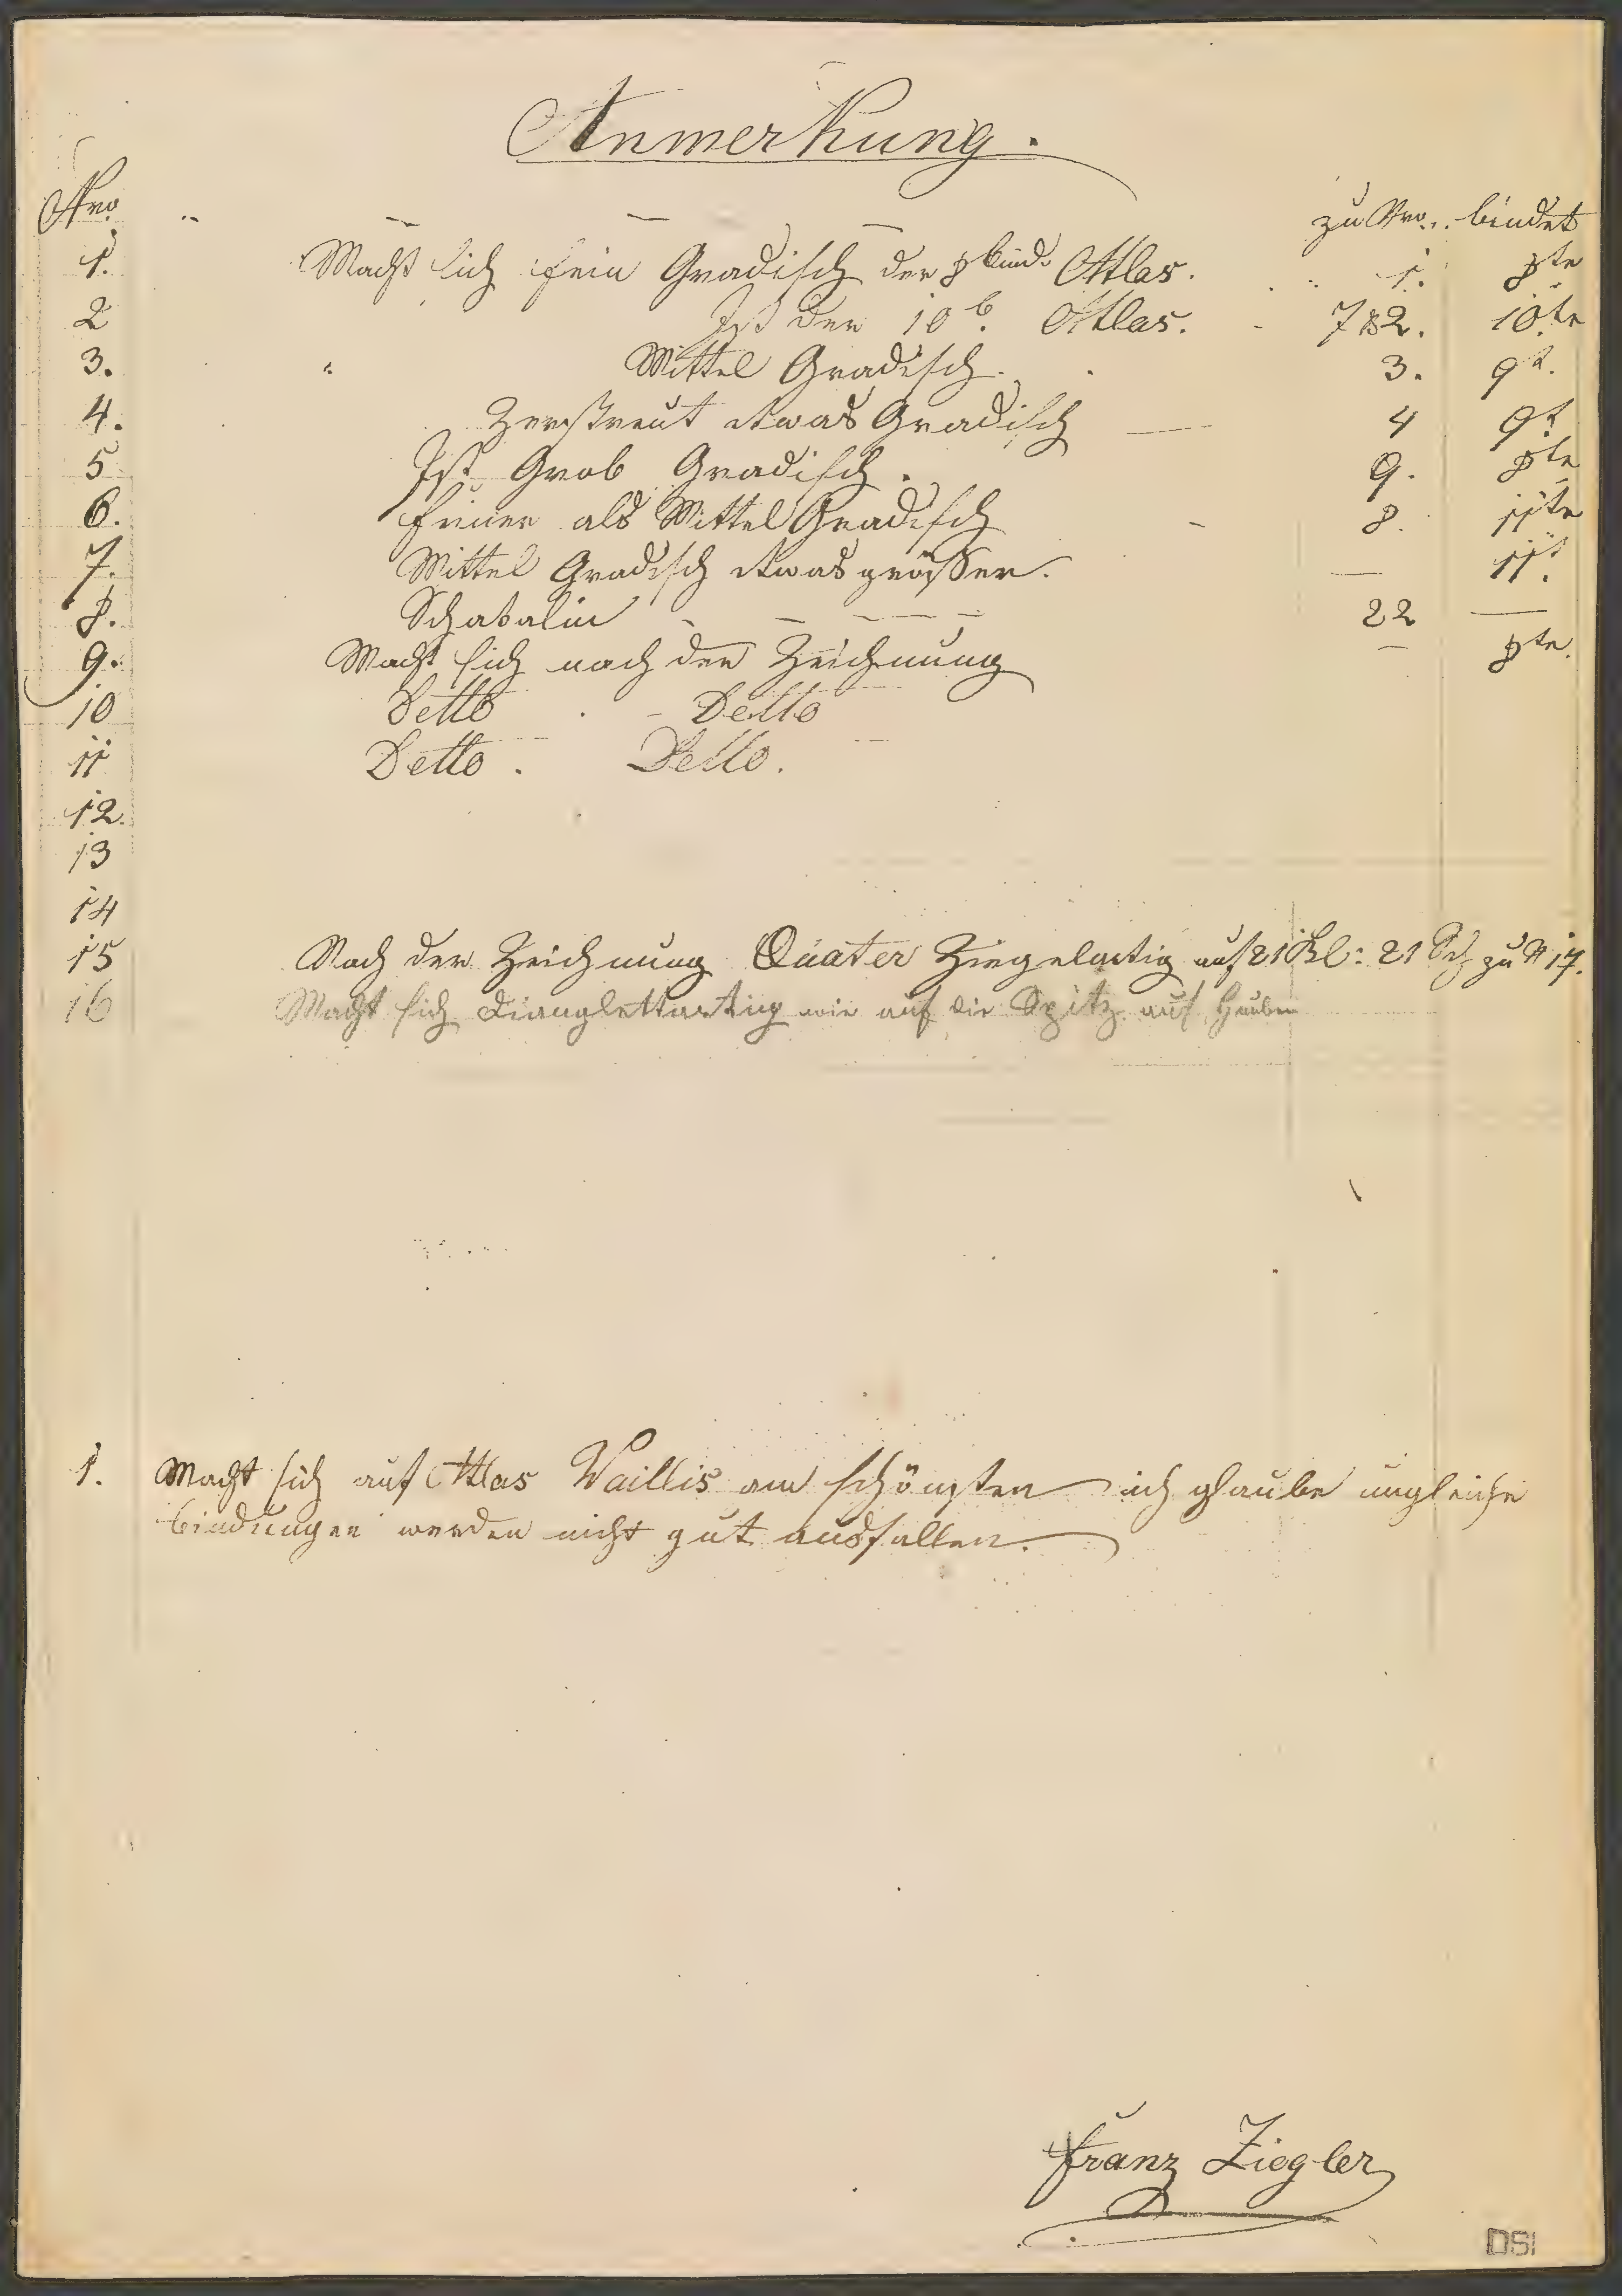 Anmerkung.
Nro. zu Nro. bindet
1. Macht sich fein Gradisch der 8 bind. Atlas. 1. 8te
2 Ist der 10 b. Atlas. 782. 10te
3. Mittel Gradisch. 3. 9t.
4. Zerstreut etwas Gradisch 4 9t
5 Ist Grob Gradisch. 9. 8te
6. feiner als Mittel Gradisch 8. 11te
7. Mittel Gradisch etwas grösser. — 11t.
8. Schabalin 22 —
9. Macht sich nach der Zeichnung — 8te.
10 Detto - Detto
11 Detto. Detto.
12.
13
14
15 Nach der Zeichnung Quater Ziegelartig auf 21 Kl: 21 Sch zu N 17.
16 Macht sich wie auf die Spitz auf Hauben
1. Macht sich auf Atlas Waillis am schönsten ich glaube ungleiche
bindungen werden nicht gut ausfallen.
Franz Ziegler
DSI